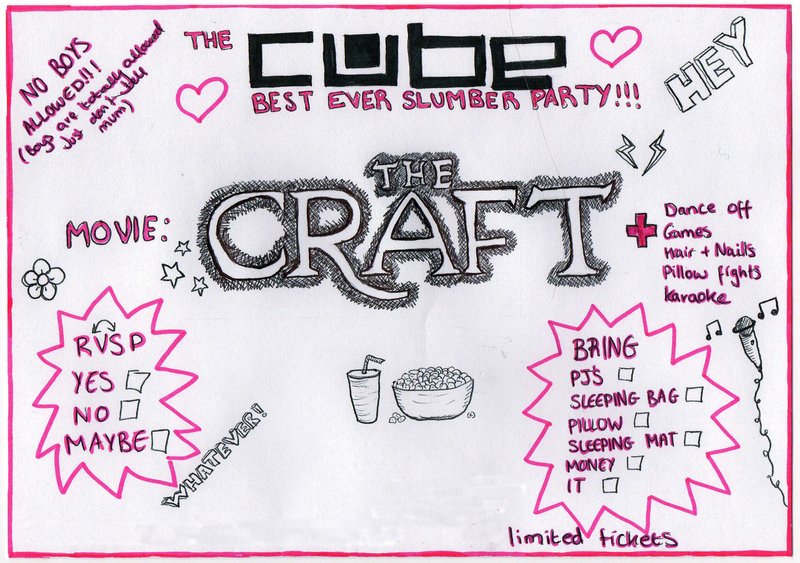 NO BOYS
ALLOWED!!!
(Boys are totally allowed
just don't tell
mum)
THE CUBE
BEST EVER SLUMBER PARTY!!!
HEY
MOVIE:
THE
CRAFT
+
Dance off
Games
Hair + Naills
Pillow fights
Karaoke
RVSP
YES
NO
MAYBE
WHATEVER!
BRING
PJ'S
SLEEPING BAG
PILLOW
SLEEPING MAT
MONEY
IT
limited tickets